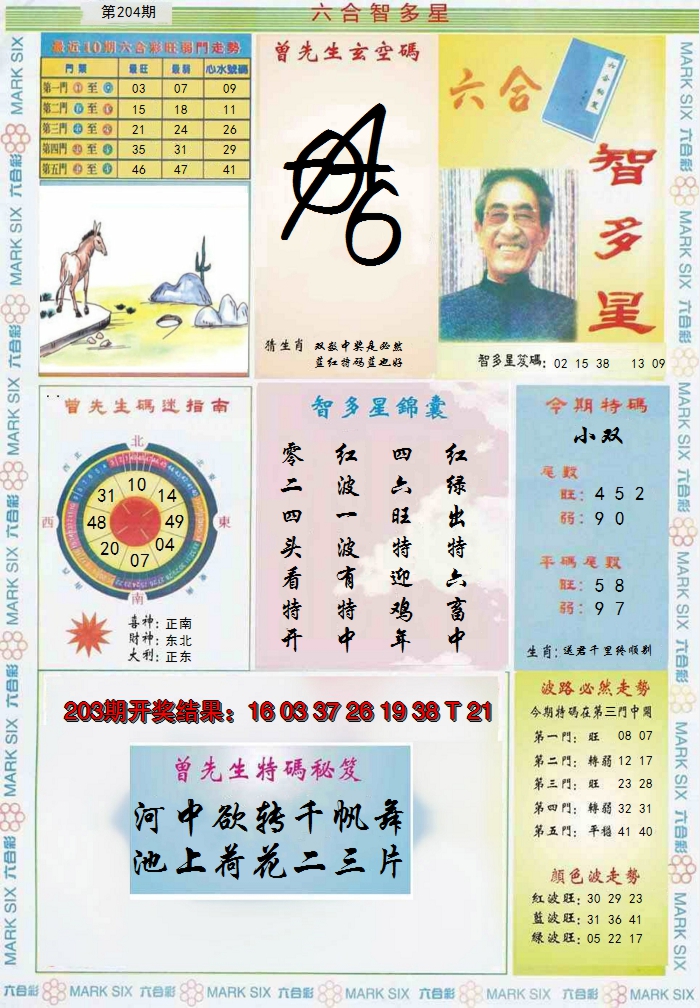 第204期
六合智多星
最近10期六合彩旺弱門走勢
門類 最旺 最弱 心水號碼
第一門 至 03 07 09
第二門 至 15 18 11
第三門 至 21 24 26
第四門 至 35 31 29
第五門 至 46 47 41
曾先生玄空碼
6
猜生肖 双数中奖是必然
蓝红特码蓝也好
六合
智多星
智多星笈碼: 02 15 38 13 09
曾先生碼迷指南
北
西 東
南
10 14 49 04 07 20 48 31
喜神: 正南
财神: 东北
大利: 正东
智多星錦囊
零二四头看特开
红波一波有特中
四六旺特迎鸡年
红绿出特六畜中
今期特碼
小双
尾数
旺: 4 5 2
弱: 9 0
平碼尾数
旺: 5 8
弱: 9 7
生肖: 送君千里终顺别
203期开奖结果: 16 03 37 26 19 38 T 21
曾先生特碼秘笈
河中欲转千帆舞
池上荷花二三片
波路必然走势
今期特碼在第三門中開
第一門: 旺 08 07
第二門: 轉弱 12 17
第三門: 旺 23 28
第四門: 轉弱 32 31
第五門: 平穩 41 40
顔色波走势
红波旺: 30 29 23
藍波旺: 31 36 41
绿波旺: 05 22 17
六合彩 MARK SIX